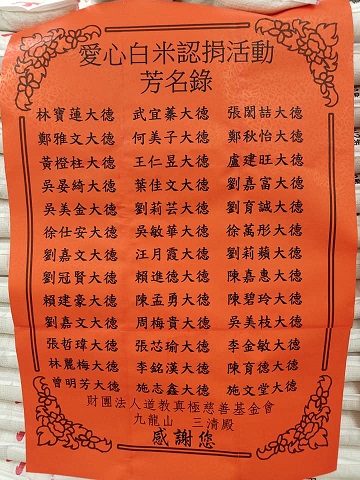 愛心白米認捐活動
芳名錄
林寶蓮大德 武宜蓁大德 張閎詰大德
鄭雅文大德 何美子大德 鄭秋怡大德
黃橙柱大德 王仁昱大德 盧建旺大德
吳晏綺大德 葉佳文大德 劉嘉富大德
吳美金大德 劉莉芸大德 劉育誠大德
徐仕安大德 吳敏華大德 徐萬彤大德
劉嘉文大德 汪月霞大德 劉莉蘋大德
劉冠賢大德 賴進德大德 陳嘉惠大德
賴建豪大德 陳孟勇大德 陳碧玲大德
劉嘉文大德 周梅貴大德 吳美枝大德
張哲瑋大德 張芯瑜大德 李金敏大德
林麗梅大德 李銘漢大德 陳育德大德
曾明芳大德 施志鑫大德 施文堂大德
財團法人道教真極慈善基金會
九龍山 三清殿
感謝您